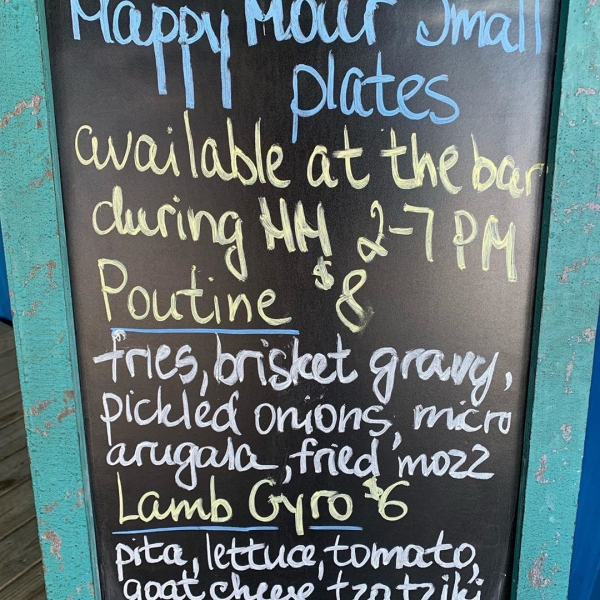 Happy Hour Small
plates
available at the bar
during HH 2-7 PM
Poutine $8
fries, brisket gravy,
pickled onions, micro
arugala, fried mozz
Lamb Gyro $6
pita, lettuce, tomato,
goat cheese, tzatziki